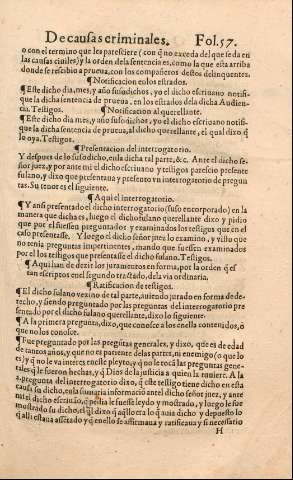 De causas criminales. Fol.57.
o con el termino que les paresciere (con q̃ no exceda del que se da en
las causas ciuiles) y la orden de la sentencia es, como la que esta arriba
donde se rescibio a prueua, con los compañeros destos delinquentes.
¶Notificacion en los estrados.
¶Este dicho dia, mes, y año suso dichos, yo el dicho escriuano notifi-
que la dicha sentencia de prueua, en los estrados de la dicha Audien-
cia. Testigos. ¶Notificacion al querellante.
¶Este dicho dia, mes, y año suso dichos, yo el dicho escriuano notifi-
que la dicha sentencia de prueua, al dicho querellante, el qual dixo q̃
lo oya. Testigos.
¶Presentacion del interrogatorio.
Y despues de lo suso dicho, en la dicha tal parte, &c. Ante el dicho se-
ñor juez, y por ante mi el dicho escriuano y testigos parescio presente
fulano, y dixo que presentaua y presento vn interrogatorio de pregun
tas. Su tenor es el siguiente.
¶Aqui el interrogatorio.
¶Y ansi presentado el dicho interrogatorio (suso encorporado) en la
manera que dicha es, luego el dicho fulano querellante dixo y pidio
que por el fuessen preguntados y examinados los testigos que en el
caso presentasse. Y luego el dicho señor juez lo examino, y visto que
no tenia preguntas impertinentes, mando que fuessen examinados
por el los testigos que presentasse el dicho fulano. Testigos.
¶Aqui han de dezir los juramentos en forma, por la orden q̃ es-
tan escriptos en el segundo tractado, de la via ordinaria.
¶Ratificacion de testigos.
¶El dicho fulano vezino de tal parte, auiendo jurado en forma de de-
recho, y siendo preguntado por las preguntas del interrogatorio pre
sentado por el dicho fulano querellante, dixo lo siguiente.
¶A la primera pregunta, dixo, que conosce a los en ella contenidos, o
que no los conosce.
¶Fue preguntado por las preguntas generales, y dixo, que es de edad
de tantos años, y que no es pariente de las partes, ni enemigo (o que lo
es) y q̃ no le va interes en este pleyto, y q̃ no le tocã las preguntas gene-
rales q̃ le fueron hechas, y q̃ Dios de la justicia a quien la tuuiere. A la
pregunta del interrogatorio dixo, q̃ este testigo tiene dicho en esta
causa su dicho, en la sumaria informacio ante el dicho señor juez, y ante
mi el dicho escriuano, q̃ pedia le fuesse leydo y mostrado, y luego le fue
mostrado su dicho, el q̃l dixo q̃ aq̃llo era lo q̃ auia dicho y depuesto lo
q̃ alli estaua assentado y q̃ en ello se affirmaua y ratificaua y si necessario
H